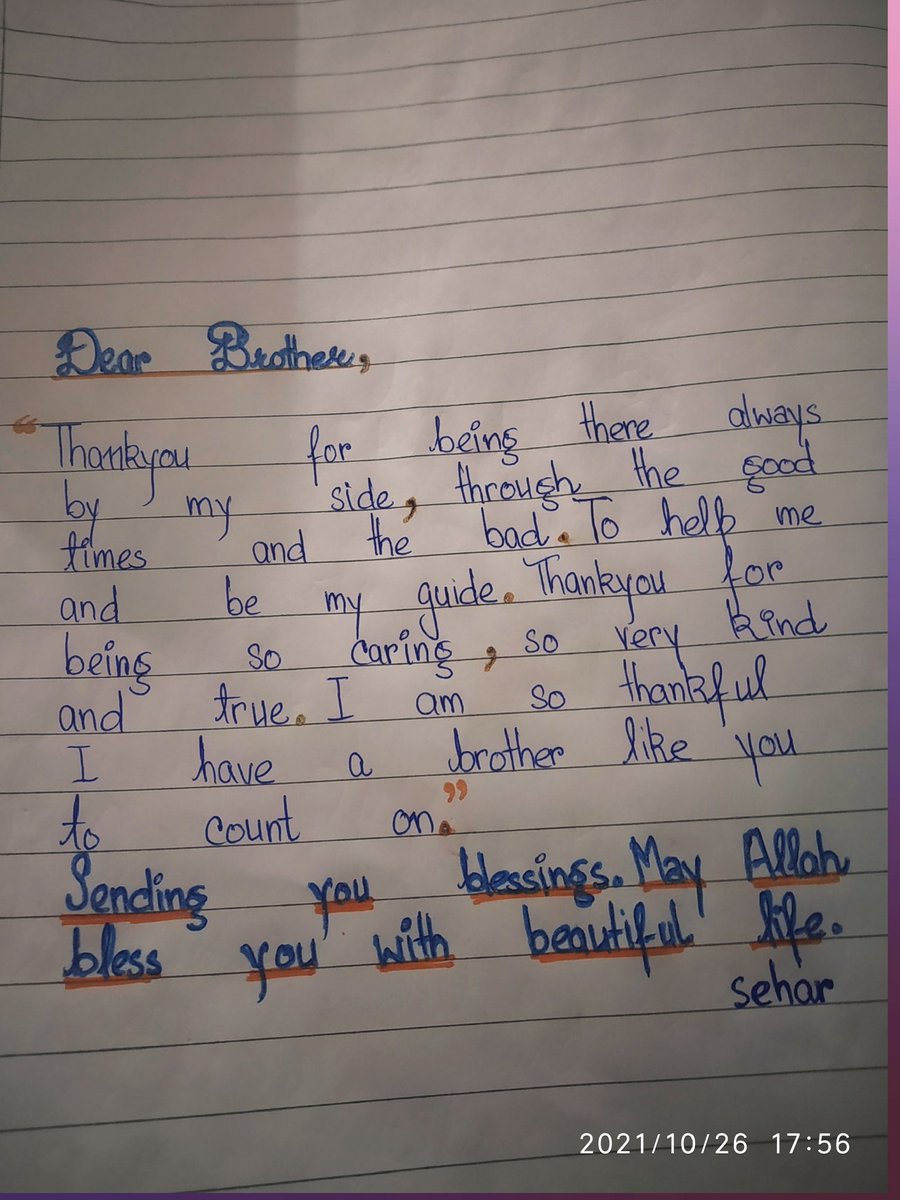 Dear Brother,
“Thankyou for being there always
by my side, through the good
times and the bad. To help me
and be my guide. Thankyou for
being so caring, so very kind
and true. I am so thankful
I have a brother like you
to count on.”
Sending you blessings. May Allah
bless you with beautiful life.
sehar
2021/10/26 17:56